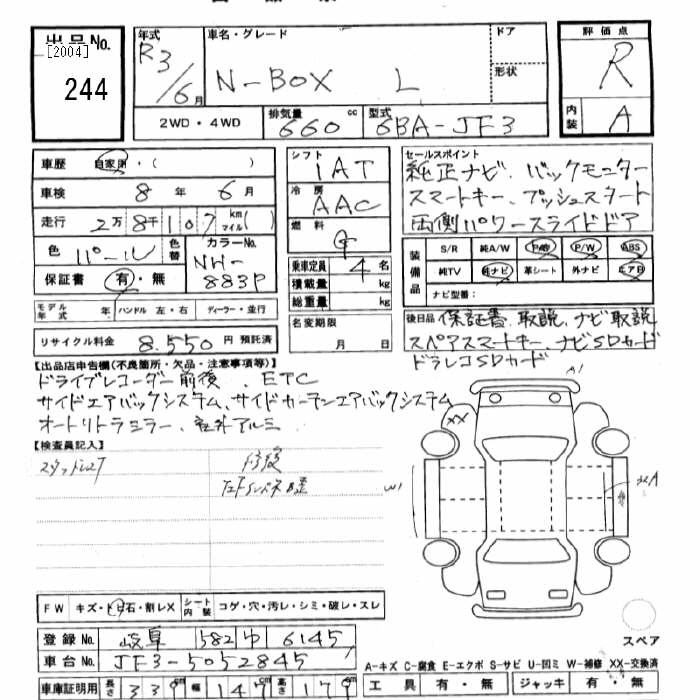 出品No.
[2004]
244
年式
R3/6月
車名・グレード
N-BOX L
ドア
形状
評価点
R
内装
A
2WD・4WD
排気量
660 cc
型式
6BA-JF3
車歴 自家用・( )
車検 8年 6月
走行 2万8千107 km マイル( )
色 パール
色替
カラーNo.
NH-883P
保証書 有・無
モデル年式 年
ハンドル 左・右
ディーラー・並行
リサイクル料金 8,550円 預託済
シフト
IAT
冷房
AAC
燃料
G
乗車定員 4名
積載量 kg
総重量 kg
名変期限
月 日
セールスポイント
純正ナビ、バックモニター
スマートキー、プッシュスタート
両側パワースライドドア
装備品
S/R 純A/W P/S P/W ABS
純TV 純ナビ 革シート 外ナビ エアB
ナビ型番:
後日品 保証書、取説、ナビ取説
スペアスマートキー、ナビSDカード
ドラレコSDカード
【出品店申告欄(不良箇所・欠品・注意事項等)】
ドライブレコーダー前後、ETC
サイドエアバックシステム、サイドカーテンエアバックシステム
オートリトラミラー、社外アルミ
【検査員記入】
スタッドレス
修復
A1
XX
W1
32A
FW キズ・トビ石・割レX
シート内装 コゲ・穴・汚レ・シミ・破レ・スレ
登録No. 岐阜 582 ゆ 6145
車台No. JF3-5052845
車庫証明用 長さ 339cm 幅 147cm 高さ 179
スペア
A-キズ C-腐食 E-エクボ S-サビ U-凹ミ W-補修 XX-交換済
工具 有・無 ジャッキ 有・無